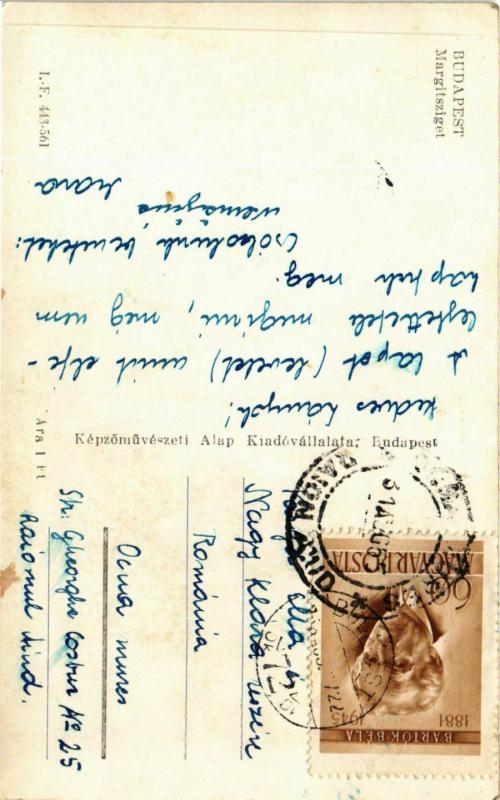 BUDAPEST
Margitsziget
Kedves Lányok!
A lapot (levelet) amit elfe-
lejtettetek megírni, még nem
kaptuk meg.
Csókolunk benneteket:
Mara
I.-F. 443-561
Képzőművészeti Alap Kiadóvállalata, Budapest
Ára 1 Ft
MAGYAR POSTA
60
BARTÓK BÉLA
1881
1945
RAION AIUD
Nagy Klára részére
Románia
Ocna Mures
Str. Gheorghe Cosbuc No 25
Raionul Aiud.